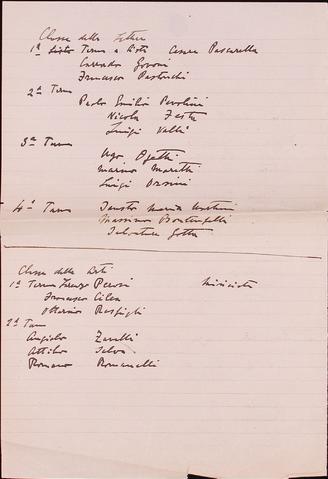 Classe delle Lettere
1ª Terna a Lista Cesare Pascarella
Corrado Govoni
Francesco Pastonchi
2ª Terna
Paolo Emilio Pavolini
Nicola Festa
Luigi Valli
3ª Terna
Ugo Ojetti
Marino Moretti
Luigi Orsini
4ª Terna Fausto Maria Martini
Massimo Bontempelli
Salvator Gotta
Classe delle Arti
1ª Terna Lorenzo Perosi Musicista
Francesco Cilea
Ottorino Respighi
2ª Terna
Angiolo Zanelli
Attilio Selva
Romano Romanelli